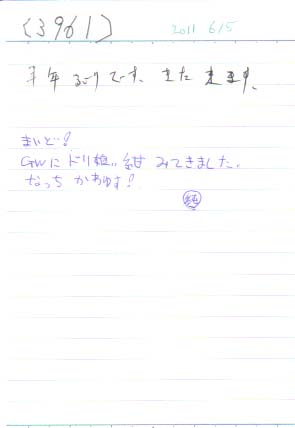 (3961) 2011 6/5
半年ぶりです。また来ます。
まいど!
GWにドリ娘。紺 みてきました。
なっち かあゆす!
純